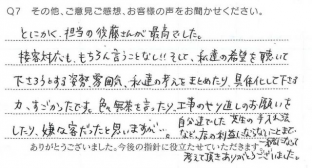 Q7 その他、ご意見ご感想、お客様の声をお聞かせください。
とにかく、担当の後藤さんが最高でした。
接客対応も、もちろん言うことなし!! そして、私達の希望を聴いて
下さろうとする姿勢、雰囲気、私達の考えをまとめたり、具体化して下さる
力、すごかったです。色々無茶を言ったり、工事のやり直しのお願いを
したり、嫌な客だったと思いますが…
自分達でした芝生の手入れ法
など、店の利益にならないことまで
一緒になって
考えて頂きありがとうございました。
ありがとうございました。今後の指針に役立たせていただきます